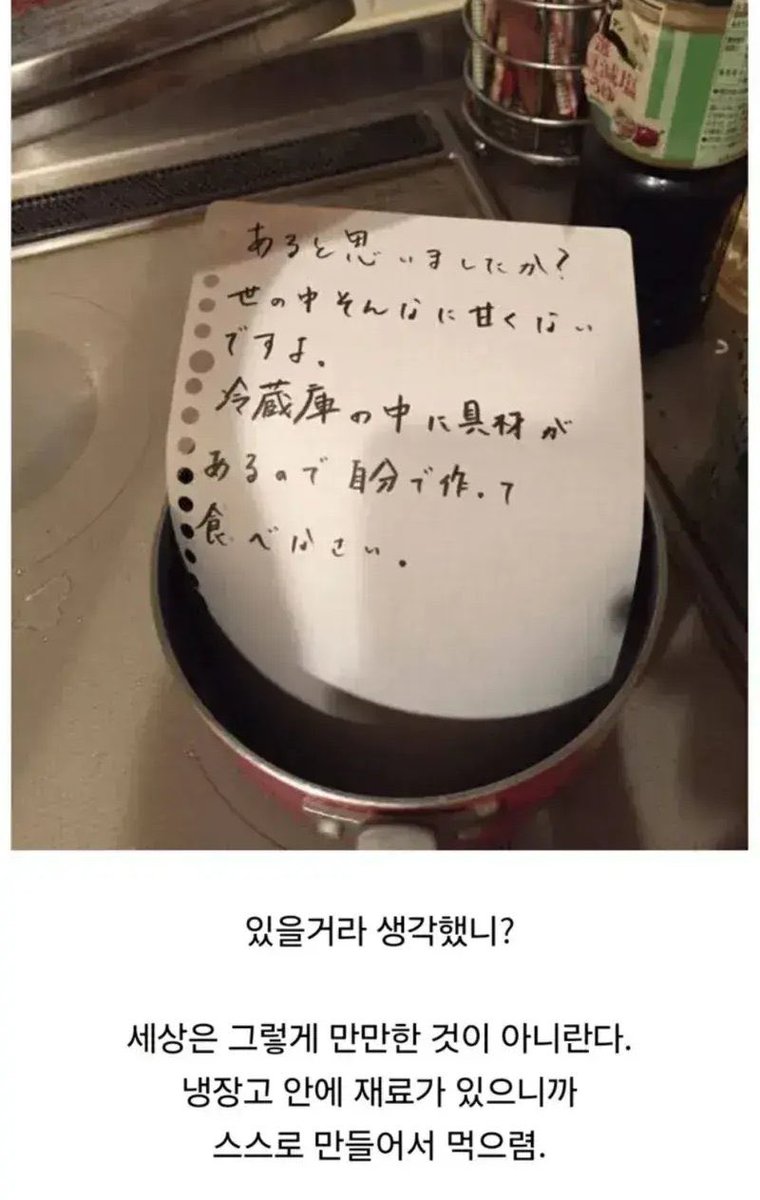 減塩
あると思いましたか?
世の中そんなに甘くない
ですよ.
冷蔵庫の中に具材が
あるので自分で作って
食べなさい.
있을거라 생각했니?
세상은 그렇게 만만한 것이 아니란다.
냉장고 안에 재료가 있으니까
스스로 만들어서 먹으렴.